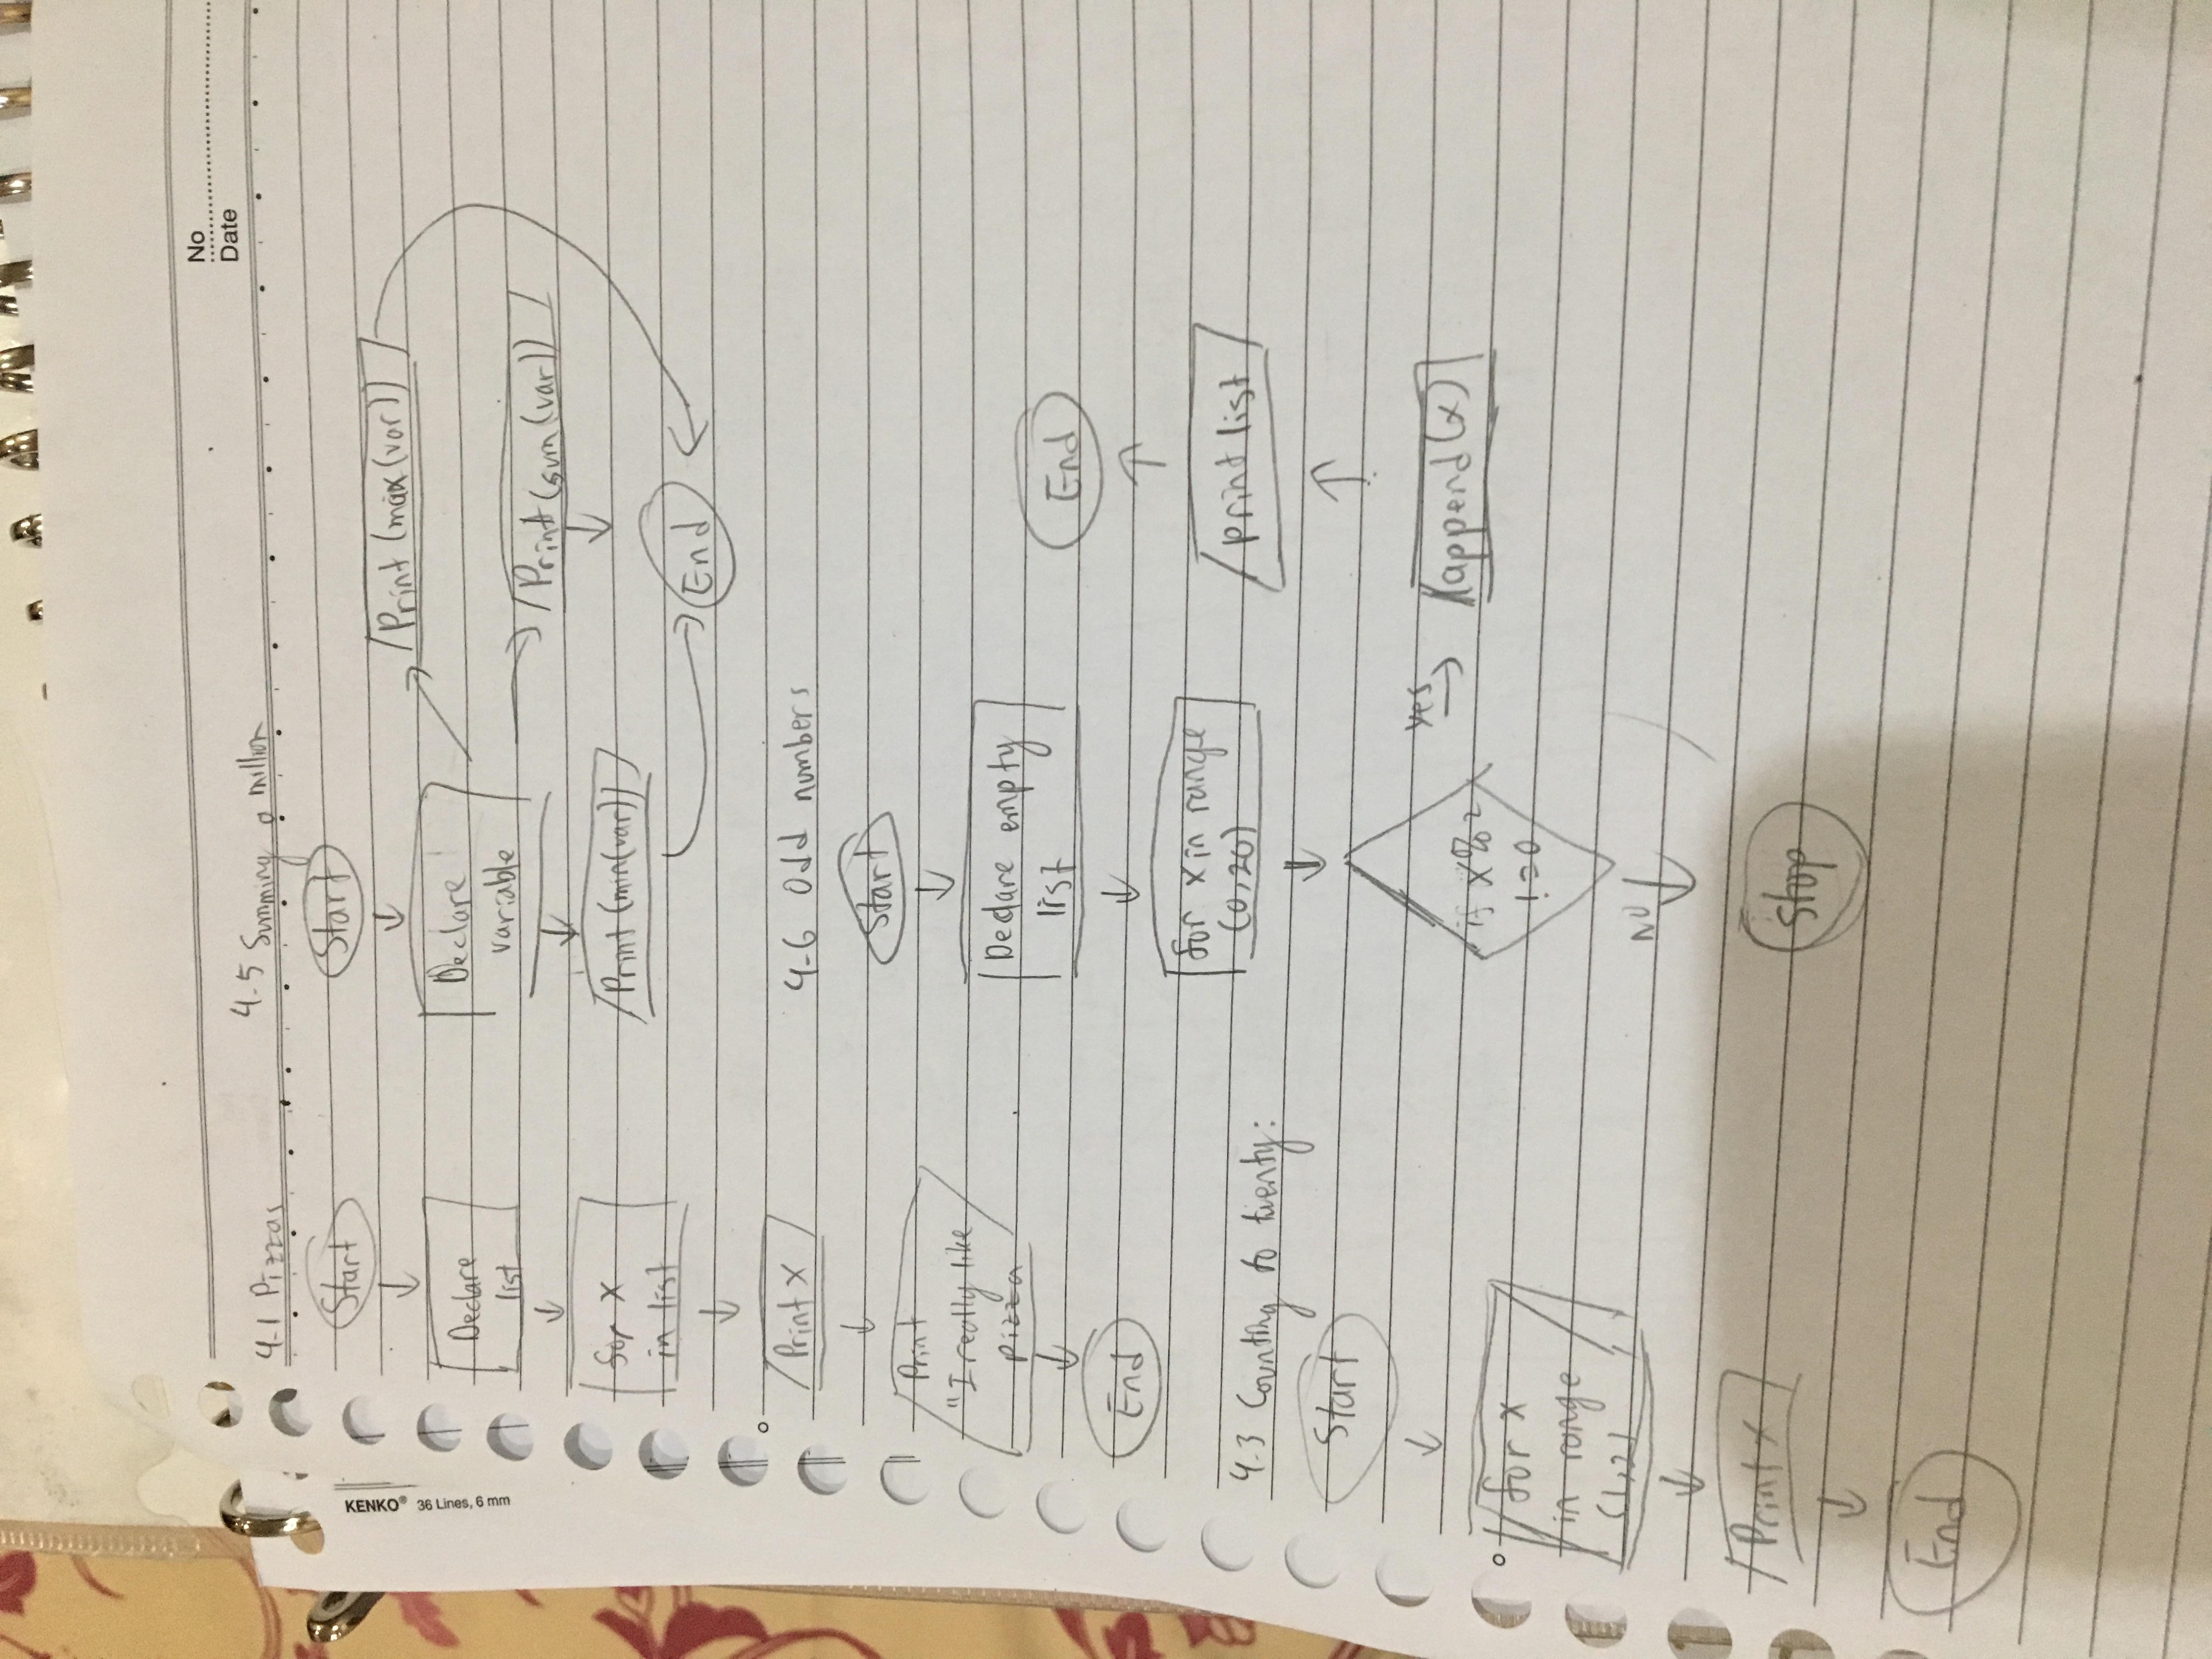 No
Date
KENKO® 36 Lines, 6 mm
4-1 Pizzas
Start
Declare
list
for x
in list
Print x
Print
"I really like
pizza
End
4-3 Counting to twenty:
Start
for x
in range
(1,2)
Print x
End
4-5 Summing a million
Start
Declare
variable
Print (min(var))
Print (max(var))
Print (sum(var))
End
4-6 Odd numbers
Start
Declare empty
list
for x in range
(0,20)
if x%2
!=0
yes
append(x)
print list
End
NO
Stop